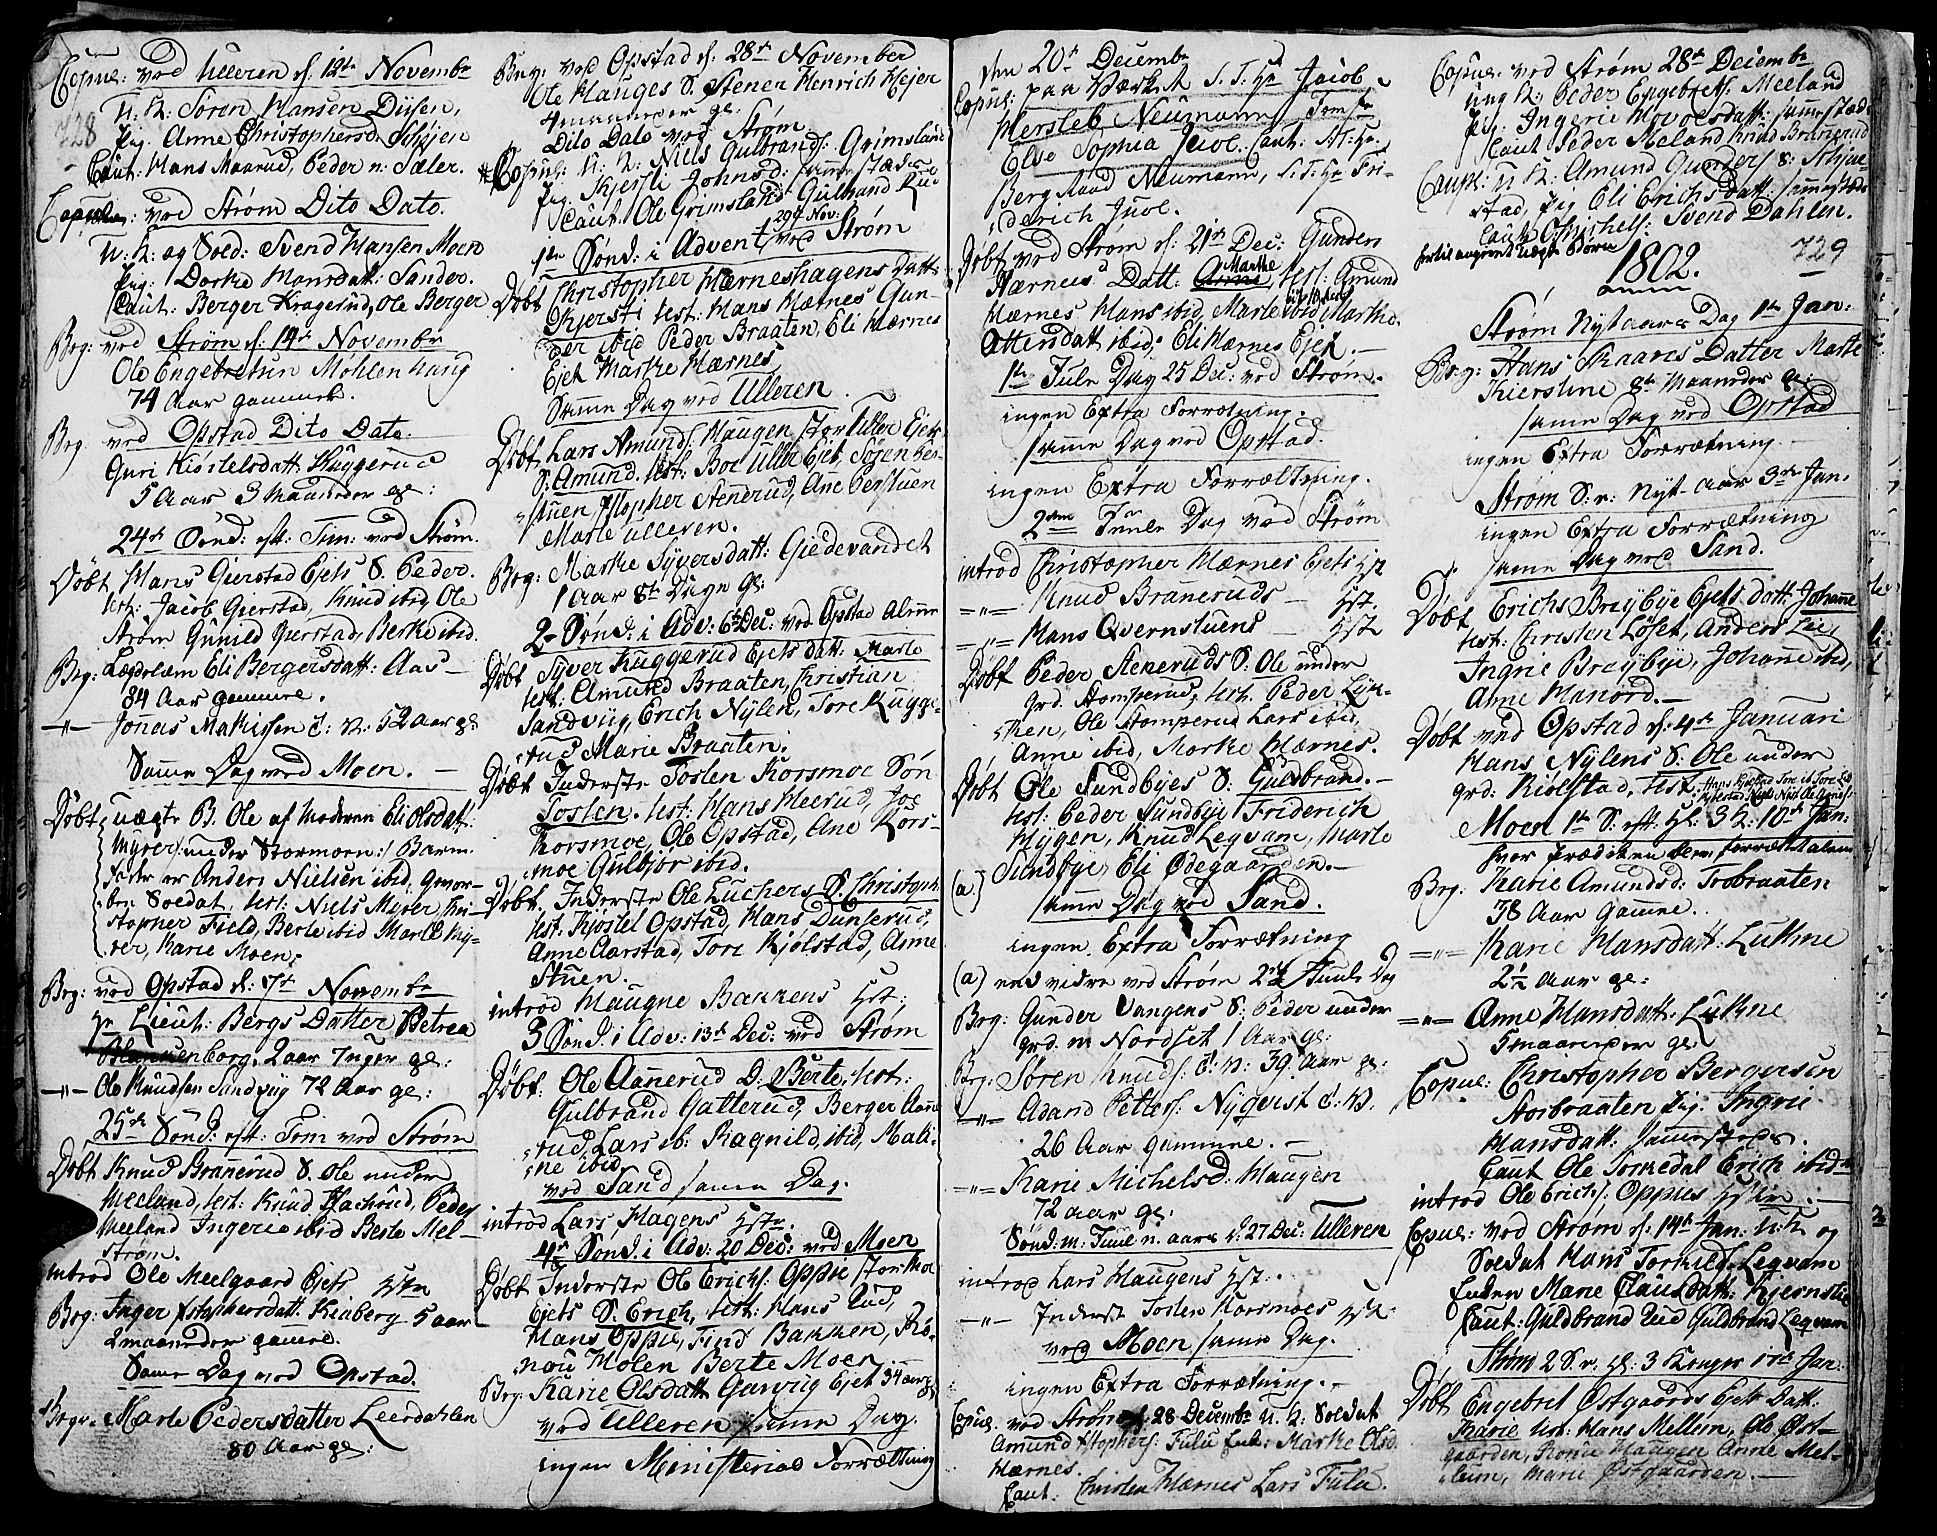 Copul: ved Ulleren d. 12te Novembr
728
U: K: Sören Hansen Diisen,
Pig: Anne Christophersd. Schöjen
Caut: Hans Maarud, Peder n: Sæler.
Copul: ved Strøm Dito Dato.
U: K: og Sold: Svend Hansen Moen
Pig: Dorthe Monsdatt: Sander.
Caut: Berger Kragerud, Ole Berger
Beg: ved Strøm d. 14de Novembr
Ole Engebretsen Möhlen haug
74 Aar gammel.
Beg ved Opstad Dito Dato.
Guri Kiöstelsdatt. Kuggerud
5 Aar 3 Maaneder ge:
24de Sønd: eft: Trin: ved Strøm.
Döbt Hans Gierstad Ejets S. Peder.
test: Jacob Gierstad, Knud ibid Ole
Strøm Gunild Gierstad, Berthe ibid.
Beg: Lægdslem Eli Bergersdatt: Aas
84 Aar gammel.
-"- Jonas Mathissen 52 Aar ge:
Samme Dag ved Moen.
Döbt uægte B. Ole af Moderen Eli Olsdatt:
Myrer /: under Stormoen :/ Barne
fader er Anders Nielsen ibid, gevor-
ben Soldat, test: Niels Myrer, Chri-
stopher Field, Berte ibid Marte My-
rer, Karie Moen.
Beg: ved Opstad d: 17de Novembr
Hr Lieut: Bergs Datter Petrea
Blanckenborg. 2 aar 7 uger ge:
-"- Ole Knudsen Sandvig 72 Aar ge:
25de Sönd: eft: Trin ved Strøm
Döbt Knud Branerud S. Ole under
Meeland, test: Knud Hachrud, Peder
Meeland Ingerie ibid Berte Mel-
strøm.
introd Ole Meelgaard Ejets Hstr
Beg: Inger Xstophersdatt. Kiaberg 5 aar
2 maaneder gamle.
Samme Dag ved Opstad.
Begr. Marte Pedersdatter Leerdahlen
80 Aar ge:
Beg: ved Opstad d. 28de November
Ole Hauges S. Stener Henrich Hejer
4 maaneder ge.
Dito Dato ved Strøm
Copul: U: K: Niels Gulbrands: Grimsland
Pig. Kjersti Johnsd: sammestædes
Caut. Ole Grimsland, Gulbrand Rud
1ste Sönd: i Advent 29de Nov: ved Strøm
Döbt Christopher Hærneshagens Datt:
Kjersti test: Hans Hærnes Gun-
der ibid Peder Braaten, Eli Hærnes
Ejet Marthe Hærnes
Samme Dag ved Ulleren
Döbt Lars Amunds. Haugen Stor Uller Ejets
S. Amund. test: Boe Uller Ejet, Sören Per-
stuen Xstopher Stenerud, Ane Perstuen
Marte Ulleren.
Beg: Marthe Syversdatt: Giedevandet
1 Aar 8te Dage ge:
2 Sönd: i Adv: 6te Dec: ved Opstad Alene
Döbt Syver Kuggerud Ejets Datt: Marte
test: Amund Braaten, Christian
Sandviig, Erich Nylen, Tore Kugge-
rud Marie Braaten.
Döbt Inderste Tosten Korsmoe Sön
Tosten. test: Hans Heerud, Joe
Korsmoe, Ole Opstad, Ane Kors-
moe Gulbjör ibid.
Döbt. Inderste Ole Luchers S. Christoph
test. Kjöstel Opstad, Hans Dunserud,
Anne Aarstad, Tore Kjölstad, Anne
Stuen.
introd Haugne Bakkens Hst:
3 Sönd. i Adv: 13de Dec: ved Strøm
Döbt: Ole Aannerud D. Berte, test:
Gulbrand Gatterud, Berger Aanne
rud, Lars ib: Ragnild ibid, Mali-
ne ibid
ved Sand samme Dag.
introd Lars Hagens Hstr.
4de Sönd. i Adv: 20 Dec: ved Moen
Döbt Inderste Ole Erichs: Oppie Stor Moe
Ejets S. Erich, test: Hans Rud,
Hans Oppie, Find Bakken, Rö-
nou Molen Berte Moen
Beg: Karie Olsdatt Garvig Ejet 34 aar ge
ved Ulleren samme Dag.
ingen Ministerial Forrætning
den 20de Decembr
Copul: paa Værket S. T: Hr Jacob
Hersleb Neumann Jomfr
Else Sophia Juel. Caut: S. T: Hr
Berg Raad Neumann, S. T: Hr Fri-
derich Juel.
Döbt ved Strøm d: 21de Dec: Gunder
Hærnes Datt: Anne Marthe, test: Amund
Hærnes Hans ibid, Marte ibid Marthe
Ottersdatt ibid. Eli Hærnes Ejet.
1te Jule Dag 25 Dec: ved Strøm.
ingen Extra Forrætning.
samme Dag ved Opstad.
ingen Extra Forrættning.
2den Juule Dag ved Strøm
introd Christopher Hærnes Ejets Hst
-"- Knud Braneruds Hst.
-"- Hans Qvernstuens Hst
Döbt Peder Steneruds S. Ole under
grd. Stomperud, test. Peder Lyk-
ken, Ole Stomperud Lars ibid,
Anne ibid, Marthe Hærnes.
Döbt Ole Sundbyes S: Guldbrand.
test: Peder Sundbye Friderich
Myggen, Knud Legvam, Marte
Sundbye, Eli Ødegaarden.
(a)
samme Dag ved Sand.
ingen Extra Forrætning
(a) end videre ved Strøm 2den Juule Dag
Beg: Gunder Vangens S. Peder under
grd. n Nordset 1 Aar ge:
Beg: Sören Knuds: 39 Aar ge:
-"- Adand Petters: Nyqvist
26 Aar gammel.
-"- Karie Michelsd: Haugen
72 aar ge:
Sönd: m: Juul n. aar d. 27 Dec: Ulleren
introd Lars Haugens Hst:
-"- Inderst Tosten Korsmoes Hst:
ved Moen samme Dag.
ingen Extra Forrætning.
Copul ved Strøm d. 28 Decembr U. K: Soldat
Amund Xstophers: Fulu Enk: Marthe Olsd:
Hærnes.
Caut. Christen Hærnes Lars Fulu.
Copul: ved Strøm 28de Decembr
Ung K: Peder Engebrets: Meeland
Pig: Ingerie Hovelsdatt: sammestæds
Caut Peder Meland Knud Branerud
Copul: U K: Amund Gunders S: Skjue-
stad, Pig Eli Erichsdatt: sammestæds
Caut Svend Dahlen.
1802.
729
Strøm Nytaars Dag 1te Jan:
Beg: Hans Skaaris Datter Marte
Kierstine 8te Maaneder ge:
samme Dag ved Opstad
ingen Extra Forrætning.
Strøm S: n: Nyt-aar 3die Jan.
ingen Extra Forrætning
samme Dag ved Sand.
Döbt Erichs Breybye Ejets datt: Johanne
test: Christen Löset, Anders Lie,
Ingrie Breybye, Johanne ibid,
Anne Hanord.
Döbt ved Opstad d. 4de Januari
Hans Nylens S. Ole under
grd: Kiölstad, test.
Moen 1te S: eft: H: 3 K: 10de Jan:
hvor Prædiken blev forrettet alene
Beg: Karie Amundsd: Trobraaten
38 Aar gamle.
-"- Karie Hansdatt: Lukne
2½ aar ge:
-"- Anne Hansdatt. Lukne
5 maaneder ge.
Copul: Christopher Bergersen
Storbraaten Pig. Ingrie
Hansdatt: sammestædes.
Caut Ole Torkedal Erich ibid
introd Ole Erichs: Oppies Hstr.
Copul: ved Strøm d. 14de Jan: U: K og
Soldat Hans Torkilds. Legvam
Enken Marie Clausdatt: Kjernslie
Caut: Guldbrand Rud Guldbrand Legvam
Strøm 2 S. n. H: 3 Konger 17de Jan:
Döbt Engebret Østgaards Ejets Datt:
Karie test: Hans Mellem, Ole Øst-
gaarden, Rønie Haugen Anne Mel-
lem, Marie Østgaarden.